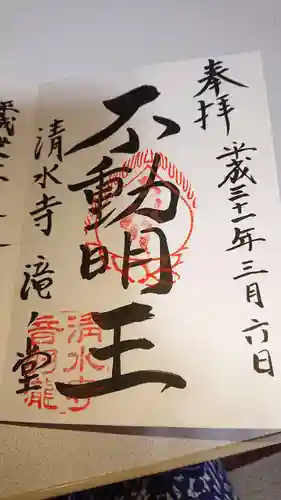 奉拝
平成三十一年三月六日
不動明王
清水寺
滝之堂
清水寺
音羽瀧